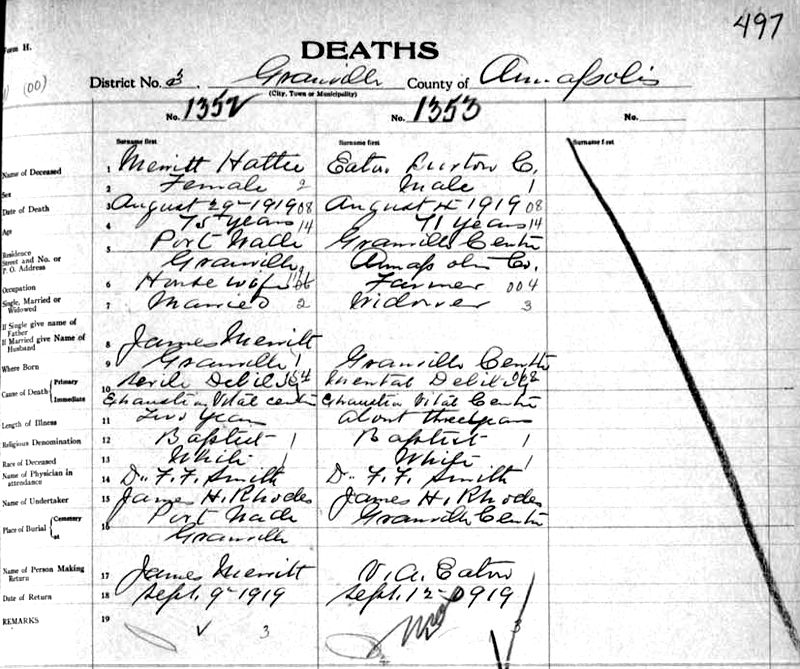 497
Form H.
DEATHS
(00)
District No. 3, Granville County of Annapolis
(City, Town or Municipality)
No. 1352 No. 1353 No.
Surname first Surname first Surname first
Name of Deceased 1 Merritt Hattie Eaton Burton C.
Sex 2 Female 2 Male 1
Date of Death 3 August 29-1919 08 August 4 1919 08
Age 4 75 years 14 71 years 14
Residence
Street and No. or
P. O. Address
5 Port Wade Granville Centre
Granville Annapolis Co.
Occupation 6 House wife Farmer 004
Single, Married or
Widowed
7 Married 2 Widower 3
If Single give name of
Father
If Married give Name of
Husband
8 James Merritt
Where Born 9 Granville 1 Granville Centre
Cause of Death Primary 10 Senile Debility Mental Debility
Immediate Exhaustion Vital centre Exhaustion Vital Centre
Length of Illness 11 Two Years About three years
Religious Denomination 12 Baptist 1 Baptist 1
Race of Deceased 13 White 1 White 1
Name of Physician in
attendance
14 Dr. F. F. Smith Dr. F. F. Smith
Name of Undertaker 15 James H. Rhodes James H. Rhodes
Place of Burial Cemetery at 16 Port Wade Granville Centre
Granville
Name of Person Making
Return
17 James Merritt V. A. Eaton
Date of Return 18 Sept. 9-1919 Sept. 12-1919
REMARKS 19
3 3